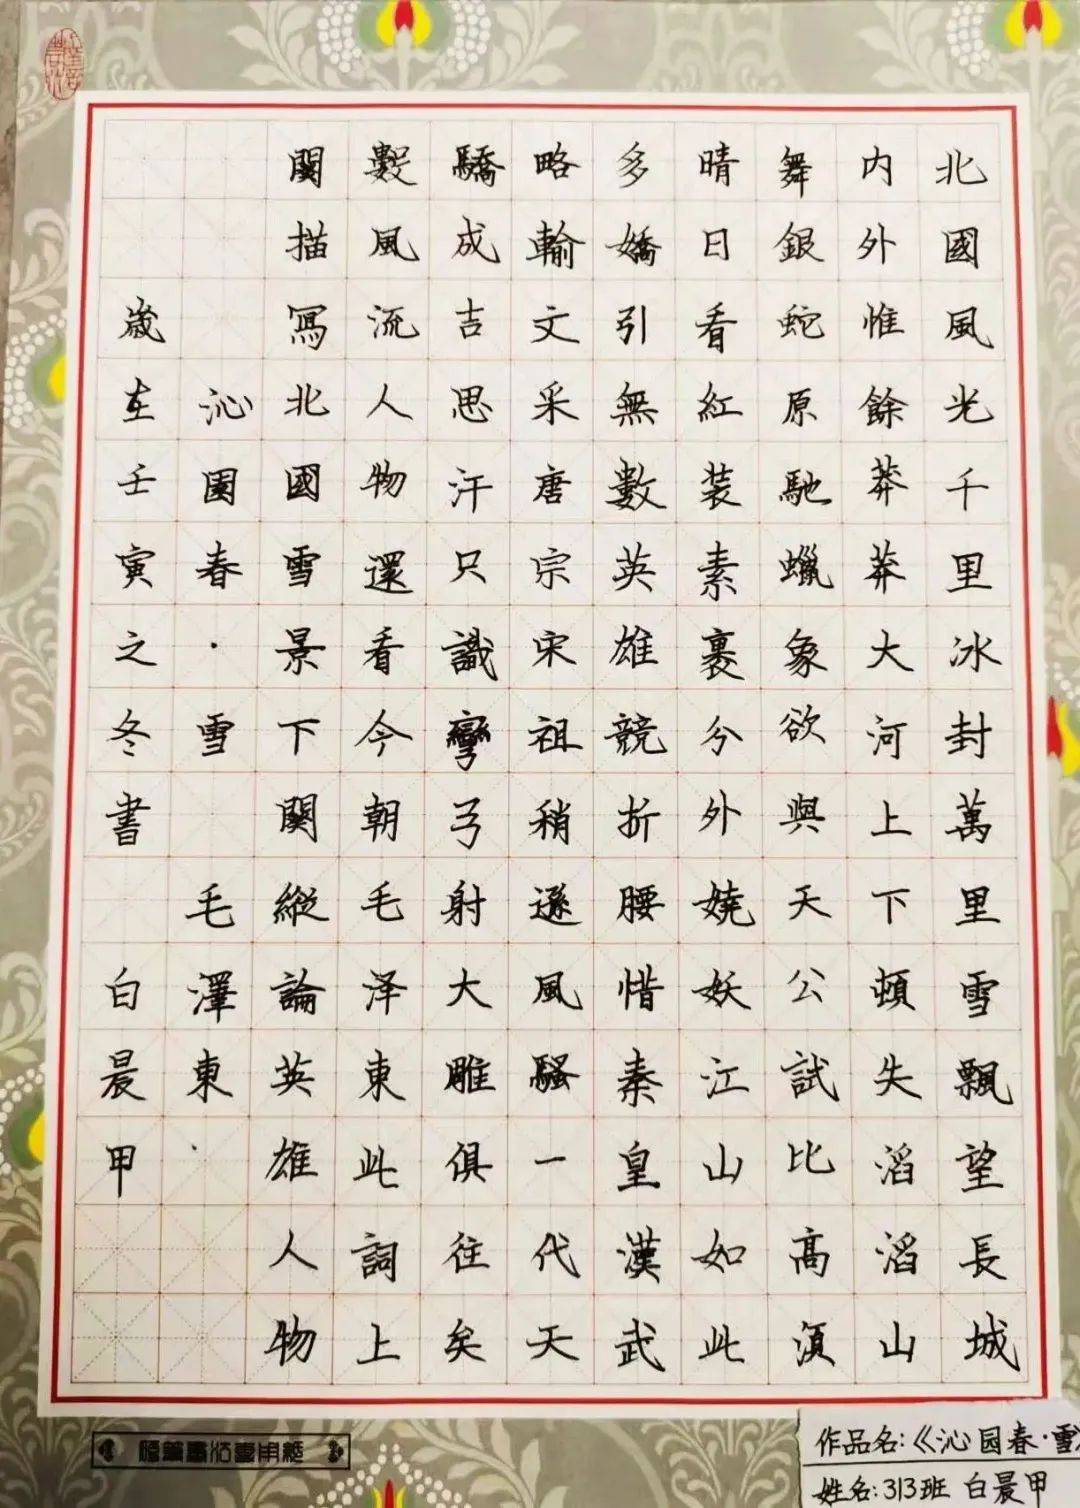 北國風光千里冰封萬里雪飄望長城
内外惟餘莽莽大河上下頓失滔滔山
舞銀蛇原馳蠟象欲與天公試比高須
晴日看紅装素裹分外嬈妖江山如此
多嬌引無數英雄競折腰惜秦皇漢武
略輸文采唐宗宋祖稍遜風騷一代天
驕成吉思汗只識彎弓射大雕俱往矣
數風流人物還看今朝毛泽東此詞上
闋描寫北國雪景下闋縱論英雄人物
沁園春·雪 毛澤東·
歲在壬寅之冬書 白晨甲
作品名:《沁园春·雪》
姓名:313班 白晨甲